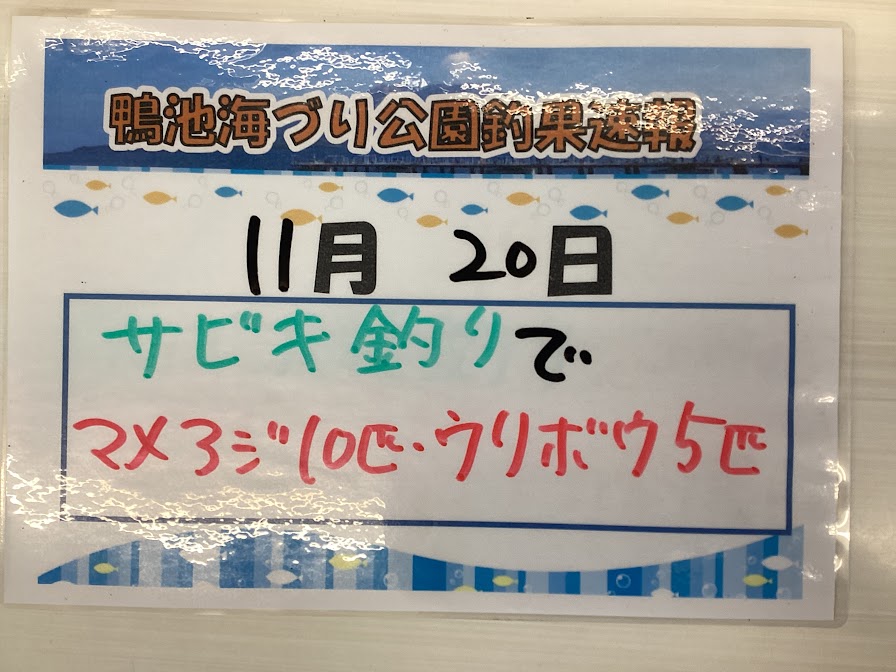 鴨池海づり公園釣果速報
11月 20日
サビキ釣りで
マメアジ10匹・ウリボウ5匹